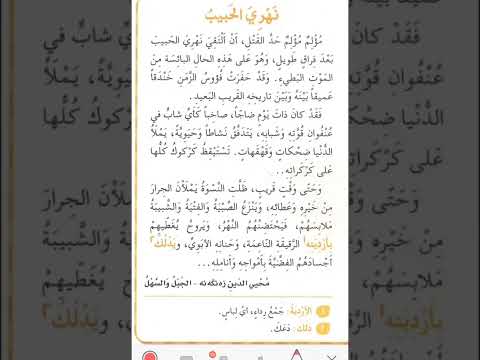 نَهْرِيَ الحَبيبُ
مُؤْلِمٌ مُؤْلِمٌ حَدَّ القَتْلِ، أَنْ أَلْتَقِيَ نَهْرِيَ الحَبيبَ
بَعْدَ فِراقٍ طَويلٍ، وَهُوَ عَلى هَذِهِ الحالِ البائِسَةِ مِنَ
المَوْتِ البَطيءِ. وَقَدْ حَفَرَتْ فُؤوسُ الزَّمَنِ خَنْدَقاً
عَميقاً بَيْنَهُ وَبَيْنَ تاريخِهِ القَريبِ البَعيدِ.
فَقَدْ كانَ ذاتَ يَوْمٍ ضاجّاً، صاخِباً كَأَيِّ شابٍّ في
عُنْفُوانِ قُوَّتِهِ وَشَبابِهِ، يَتَدَفَّقُ نَشاطاً وَحَيَوِيَّةً، يَمْلَأُ
الدُّنْيا ضِحْكاتٍ وَقَهْقَهاتٍ. تَسْتَيْقِظُ كَرْكوكُ كُلُّها
عَلى كَرْكَراتِهِ..
وَحَتّى وَقْتٍ قَريبٍ، ظَلَّتِ النِّسْوَةُ يَمْلَأْنَ الجِرارَ
مِنْ خَيْرِهِ وَعَطائِهِ، وَيَنْزَعُ الصِّبْيَةُ وَالفِتْيَةُ وَالشَّبيبَةُ
مَلابِسَهُمْ، فَيَحْتَضِنُهُمُ النَّهْرُ، وَيَروحُ يُغَطّيهِمْ
بِأَرْدِيَتِهِ¹ الرَّقيقَةِ النّاعِمَةِ، وَحَنانِهِ الأَبَوِيِّ، وَيَدْلُكُ²
أَجْسادَهُمُ الفِضِّيَّةَ بِأَمْواجِهِ وَأَنامِلِهِ...
مُحْيي الدّينِ زَه نكَه نه - الجَبَلُ وَالسَّهْلُ
1 الأَرْدِيَةُ: جَمْعُ رِداءٍ، أَيْ لِباسٍ.
2 دلك: دَعَكَ.